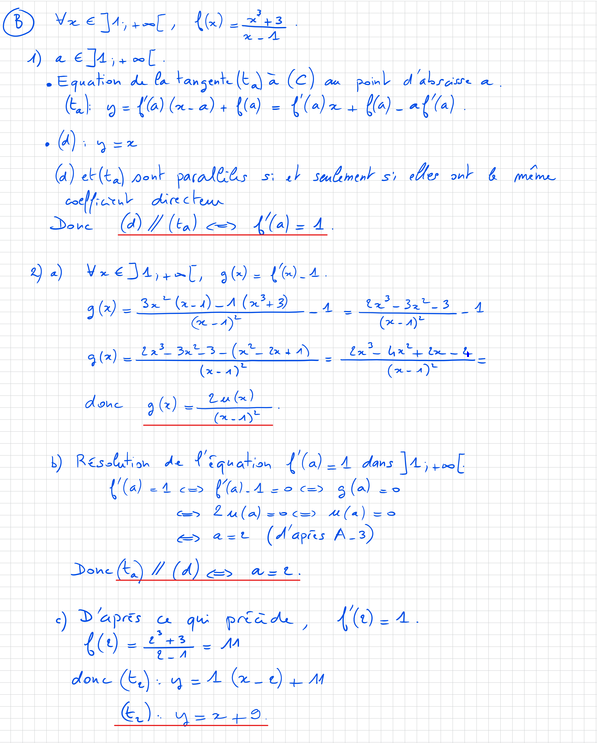 B ∀x ∈ ]1; +∞[, f(x) = (x³+3)/(x-1).
1) a ∈ ]1; +∞[.
• Equation de la tangente (ta) à (C) au point d'abscisse a.
(ta): y = f'(a)(x-a) + f(a) = f'(a)x + f(a) - af'(a).
• (d): y = x
(d) et (ta) sont parallèles si et seulement si elles ont le même
coefficient directeur
Donc (d) // (ta) <=> f'(a) = 1.
2) a) ∀x ∈ ]1; +∞[, g(x) = f'(x) - 1.
g(x) = (3x²(x-1) - 1(x³+3))/(x-1)² - 1 = (2x³-3x²-3)/(x-1)² - 1
g(x) = (2x³-3x²-3-(x²-2x+1))/(x-1)² = (2x³-4x²+2x-4)/(x-1)² =
donc g(x) = 2u(x)/(x-1)².
b) Résolution de l'équation f'(a) = 1 dans ]1; +∞[.
f'(a) = 1 <=> f'(a) - 1 = 0 <=> g(a) = 0
<=> 2u(a) = 0 <=> u(a) = 0
<=> a = 2 (d'après A-3)
Donc (ta) // (d) <=> a = 2.
c) D'après ce qui précède, f'(2) = 1.
f(2) = (2³+3)/(2-1) = 11
donc (t2): y = 1(x-2) + 11
(t2): y = x + 9.